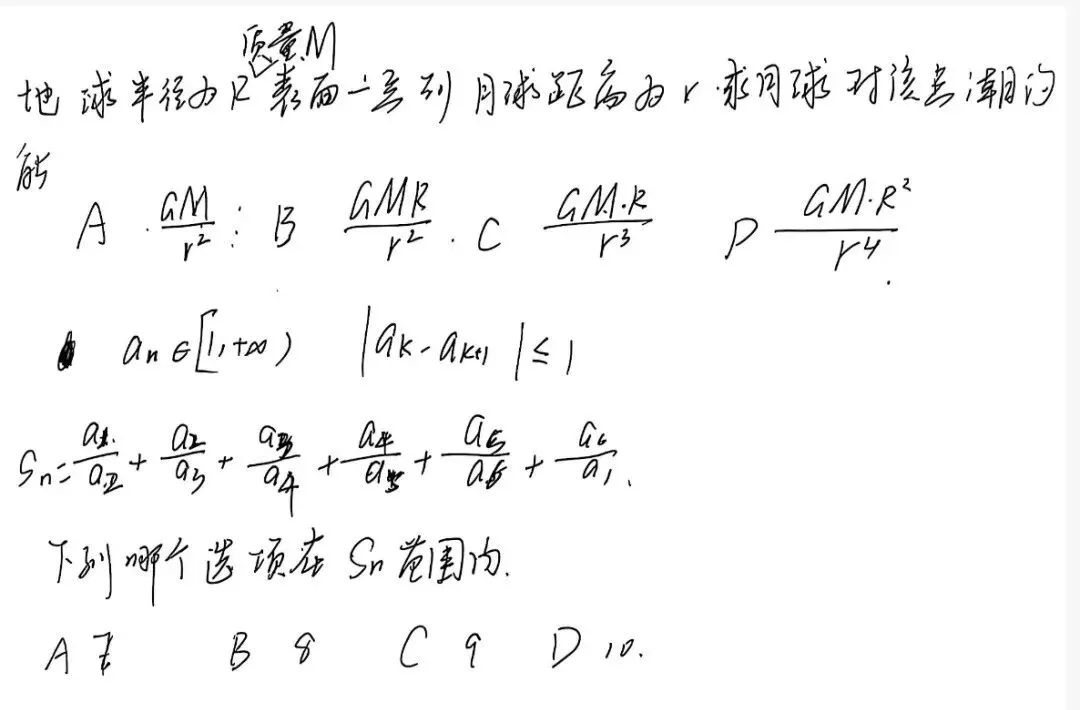 质量M
地球半径为R 表面一点到月球距离为r 求月球对该点潮汐
能
A. GM/r² : B GMR/r² . C GM·R/r³ D GM·R²/r⁴.
aₙ∈[1,+∞) |aₖ-aₖ₊₁|≤1
Sₙ=a₁/a₂+a₂/a₃+a₃/a₄+a₄/a₅+a₅/a₆+a₆/a₁.
下列哪个选项在Sₙ范围内.
A 7 B 8 C 9 D 10.